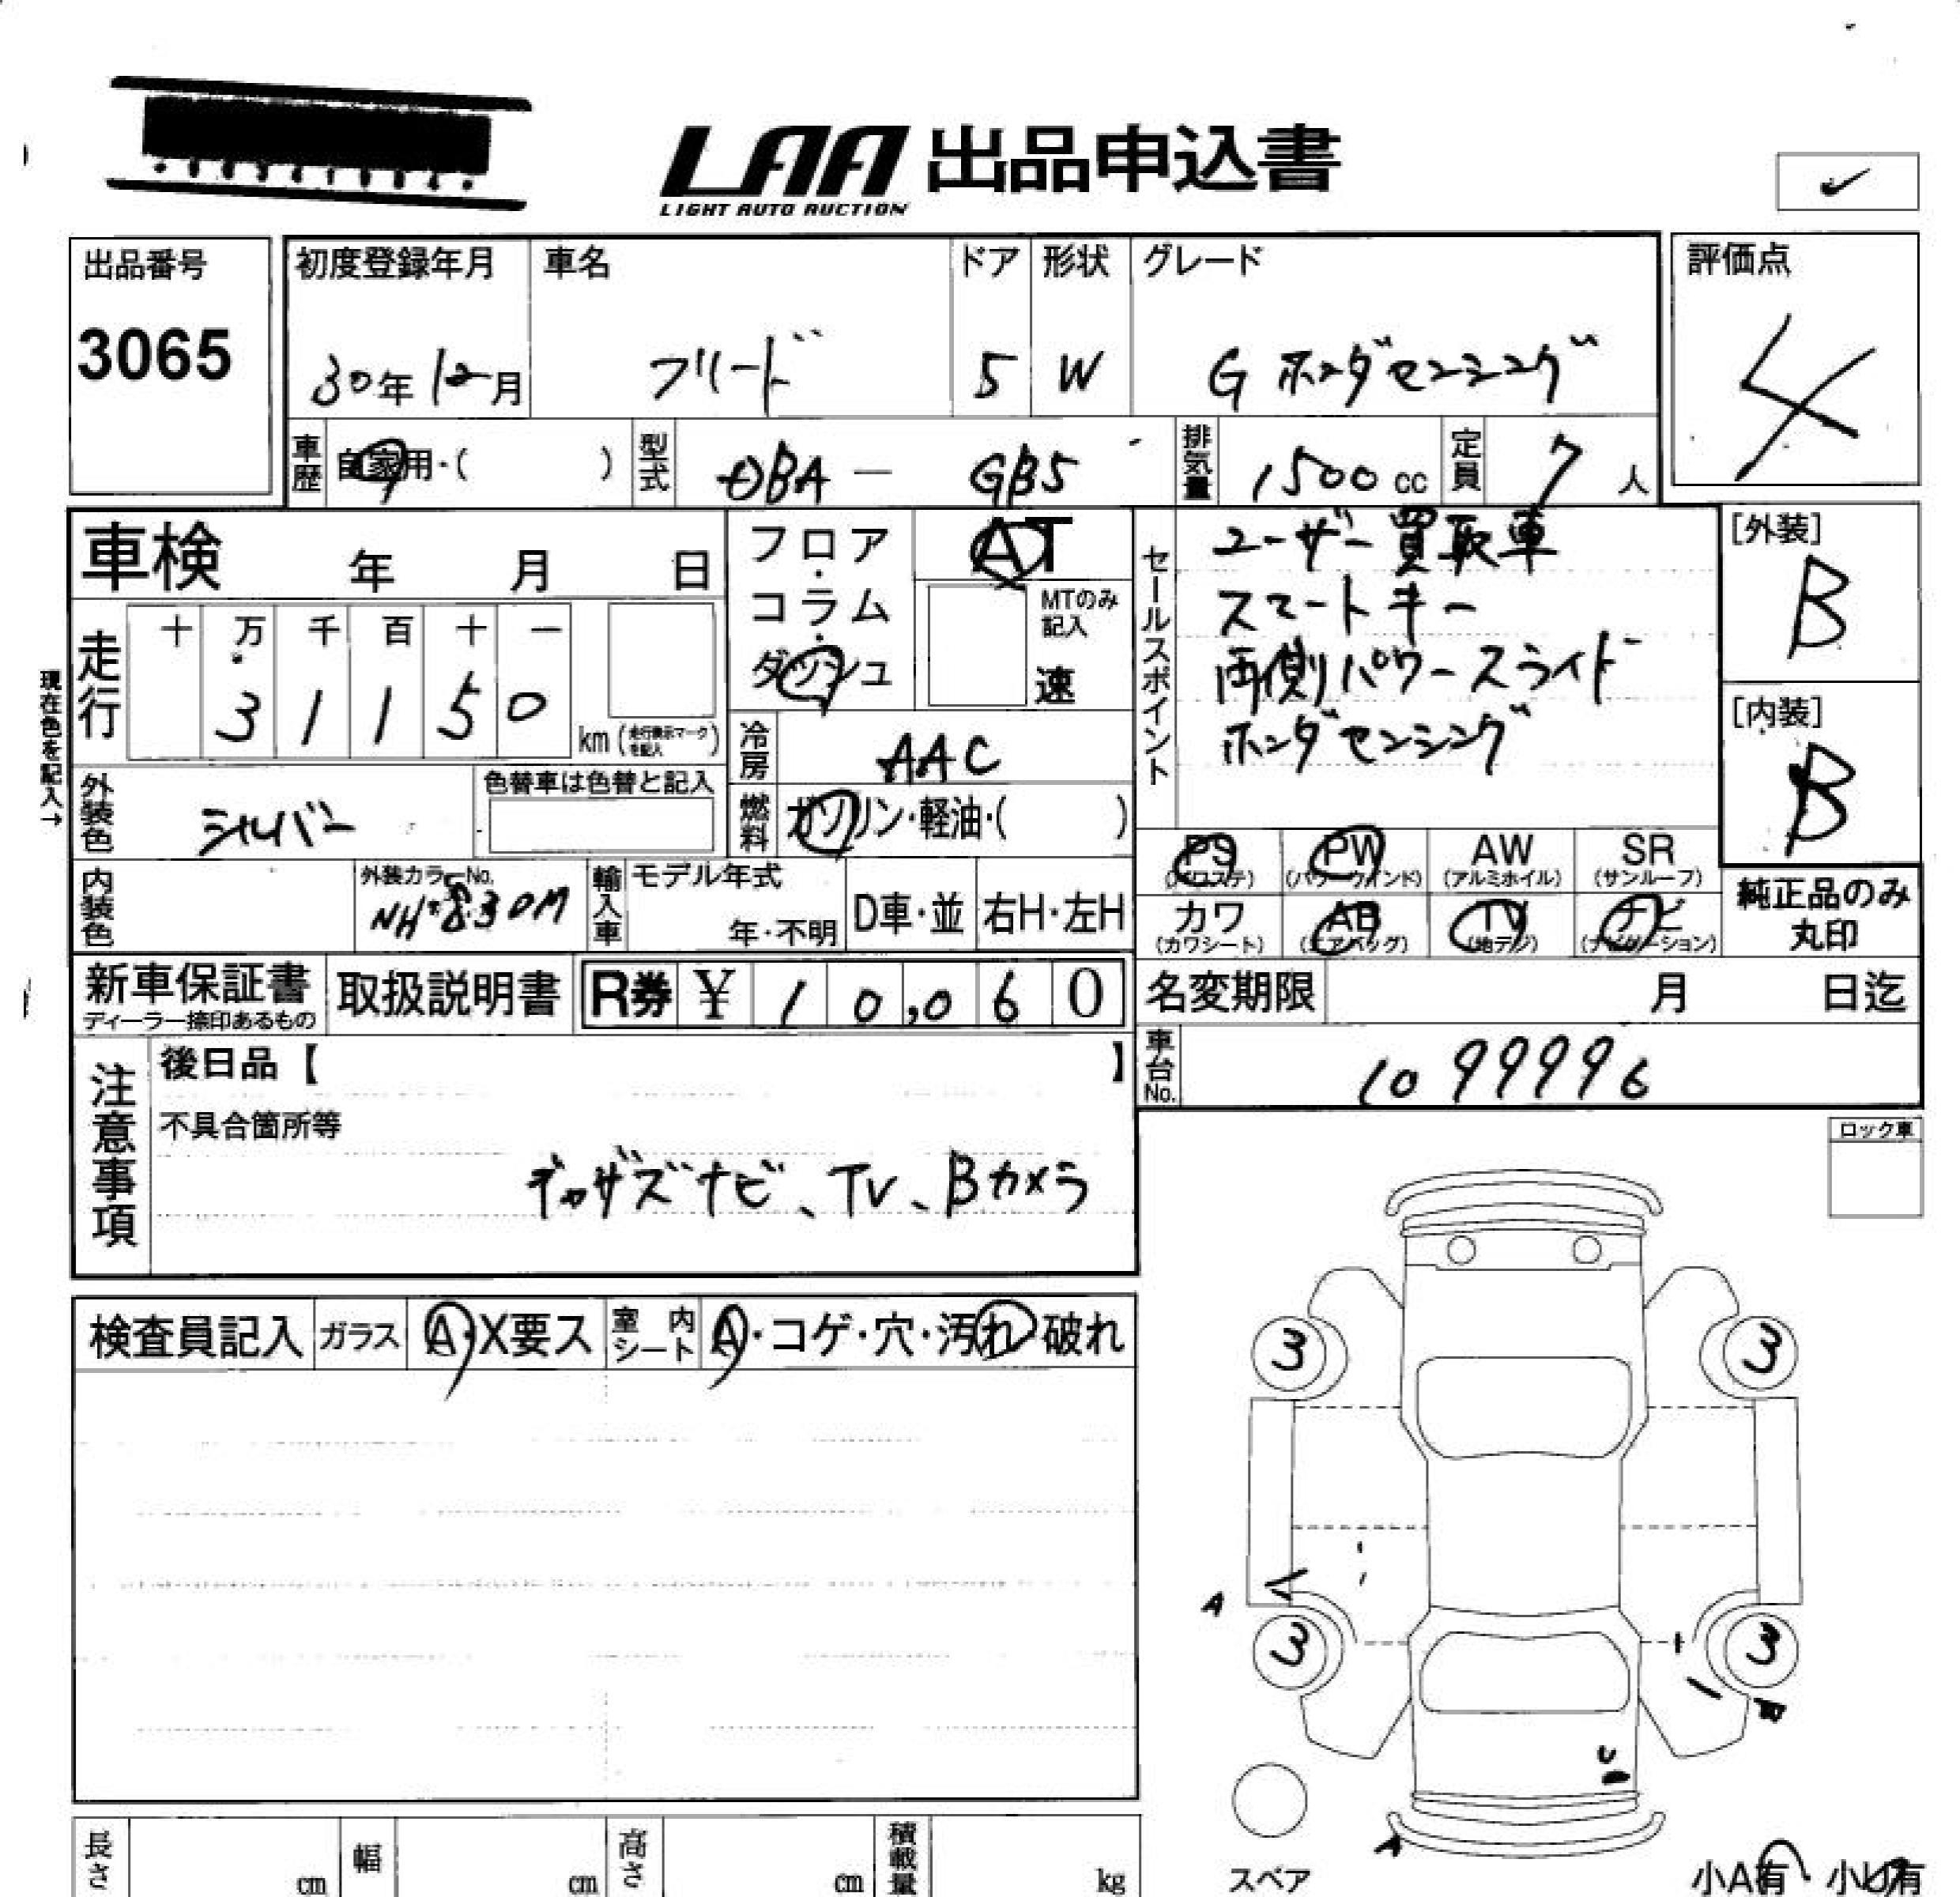 LAA 出品申込書
LIGHT AUTO AUCTION
出品番号
3065
初度登録年月
30年12月
車名
フリード
ドア
5
形状
W
グレード
G ホンダセンシング
評価点
4
車歴
自家用・( )
型式
DBA — GB5
排気量
1500 cc
定員
7 人
車検 年 月 日
フロア・コラム・ダッシュ
AT
MTのみ記入
速
セールスポイント
ユーザー買取車
スマートキー
両側パワースライド
ホンダセンシング
[外装]
B
[内装]
B
現在色を記入→
走行
十 万 千 百 十 一
3 1 1 5 0
km (走行表示マークを記入)
冷房
AAC
外装色
シルバー
色替車は色替と記入
燃料
ガソリン・軽油・( )
PS
(パワステ)
PW
(パワーウインド)
AW
(アルミホイル)
SR
(サンルーフ)
内装色
外装カラーNo.
NH830M
輸入車
モデル年式
年・不明
D車・並
右H・左H
カワ
(カワシート)
AB
(エアバッグ)
TV
(地デジ)
ナビ
(ナビゲーション)
純正品のみ
丸印
新車保証書
ディーラー捺印あるもの
取扱説明書
R券 ¥ 10,060
名変期限 月 日迄
車台No.
1099996
注意事項
後日品【 】
不具合箇所等
ギャザズナビ、TV、Bカメラ
ロック車
検査員記入
ガラス
A・X要ス
室内シート
A・コゲ・穴・汚れ・破れ
3
3
A
3
3
U
A
スペア
小A有・小U有
長さ cm
幅 cm
高さ cm
積載量 kg